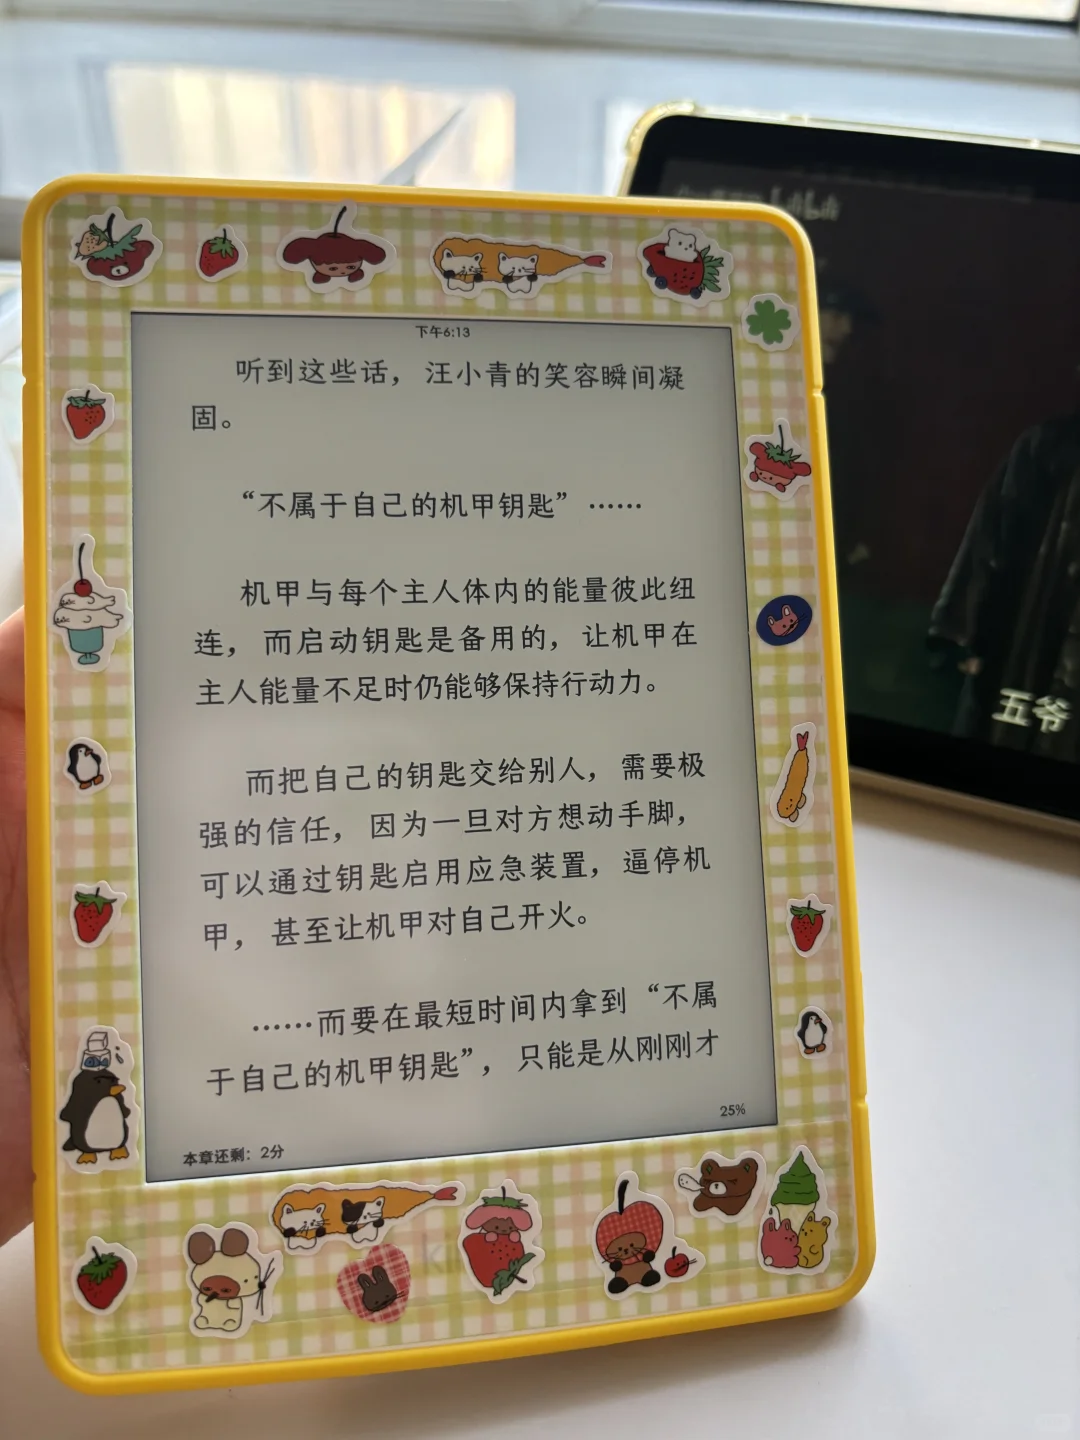 下午6:13
听到这些话，汪小青的笑容瞬间凝
固。
“不属于自己的机甲钥匙”……
机甲与每个主人体内的能量彼此纽
连，而启动钥匙是备用的，让机甲在
主人能量不足时仍能够保持行动力。
而把自己的钥匙交给别人，需要极
强的信任，因为一旦对方想动手脚，
可以通过钥匙启用应急装置，逼停机
甲，甚至让机甲对自己开火。
……而要在最短时间内拿到“不属
于自己的机甲钥匙”，只能是从刚刚才
25%
本章还剩：2分
ki
bilibili
五爷